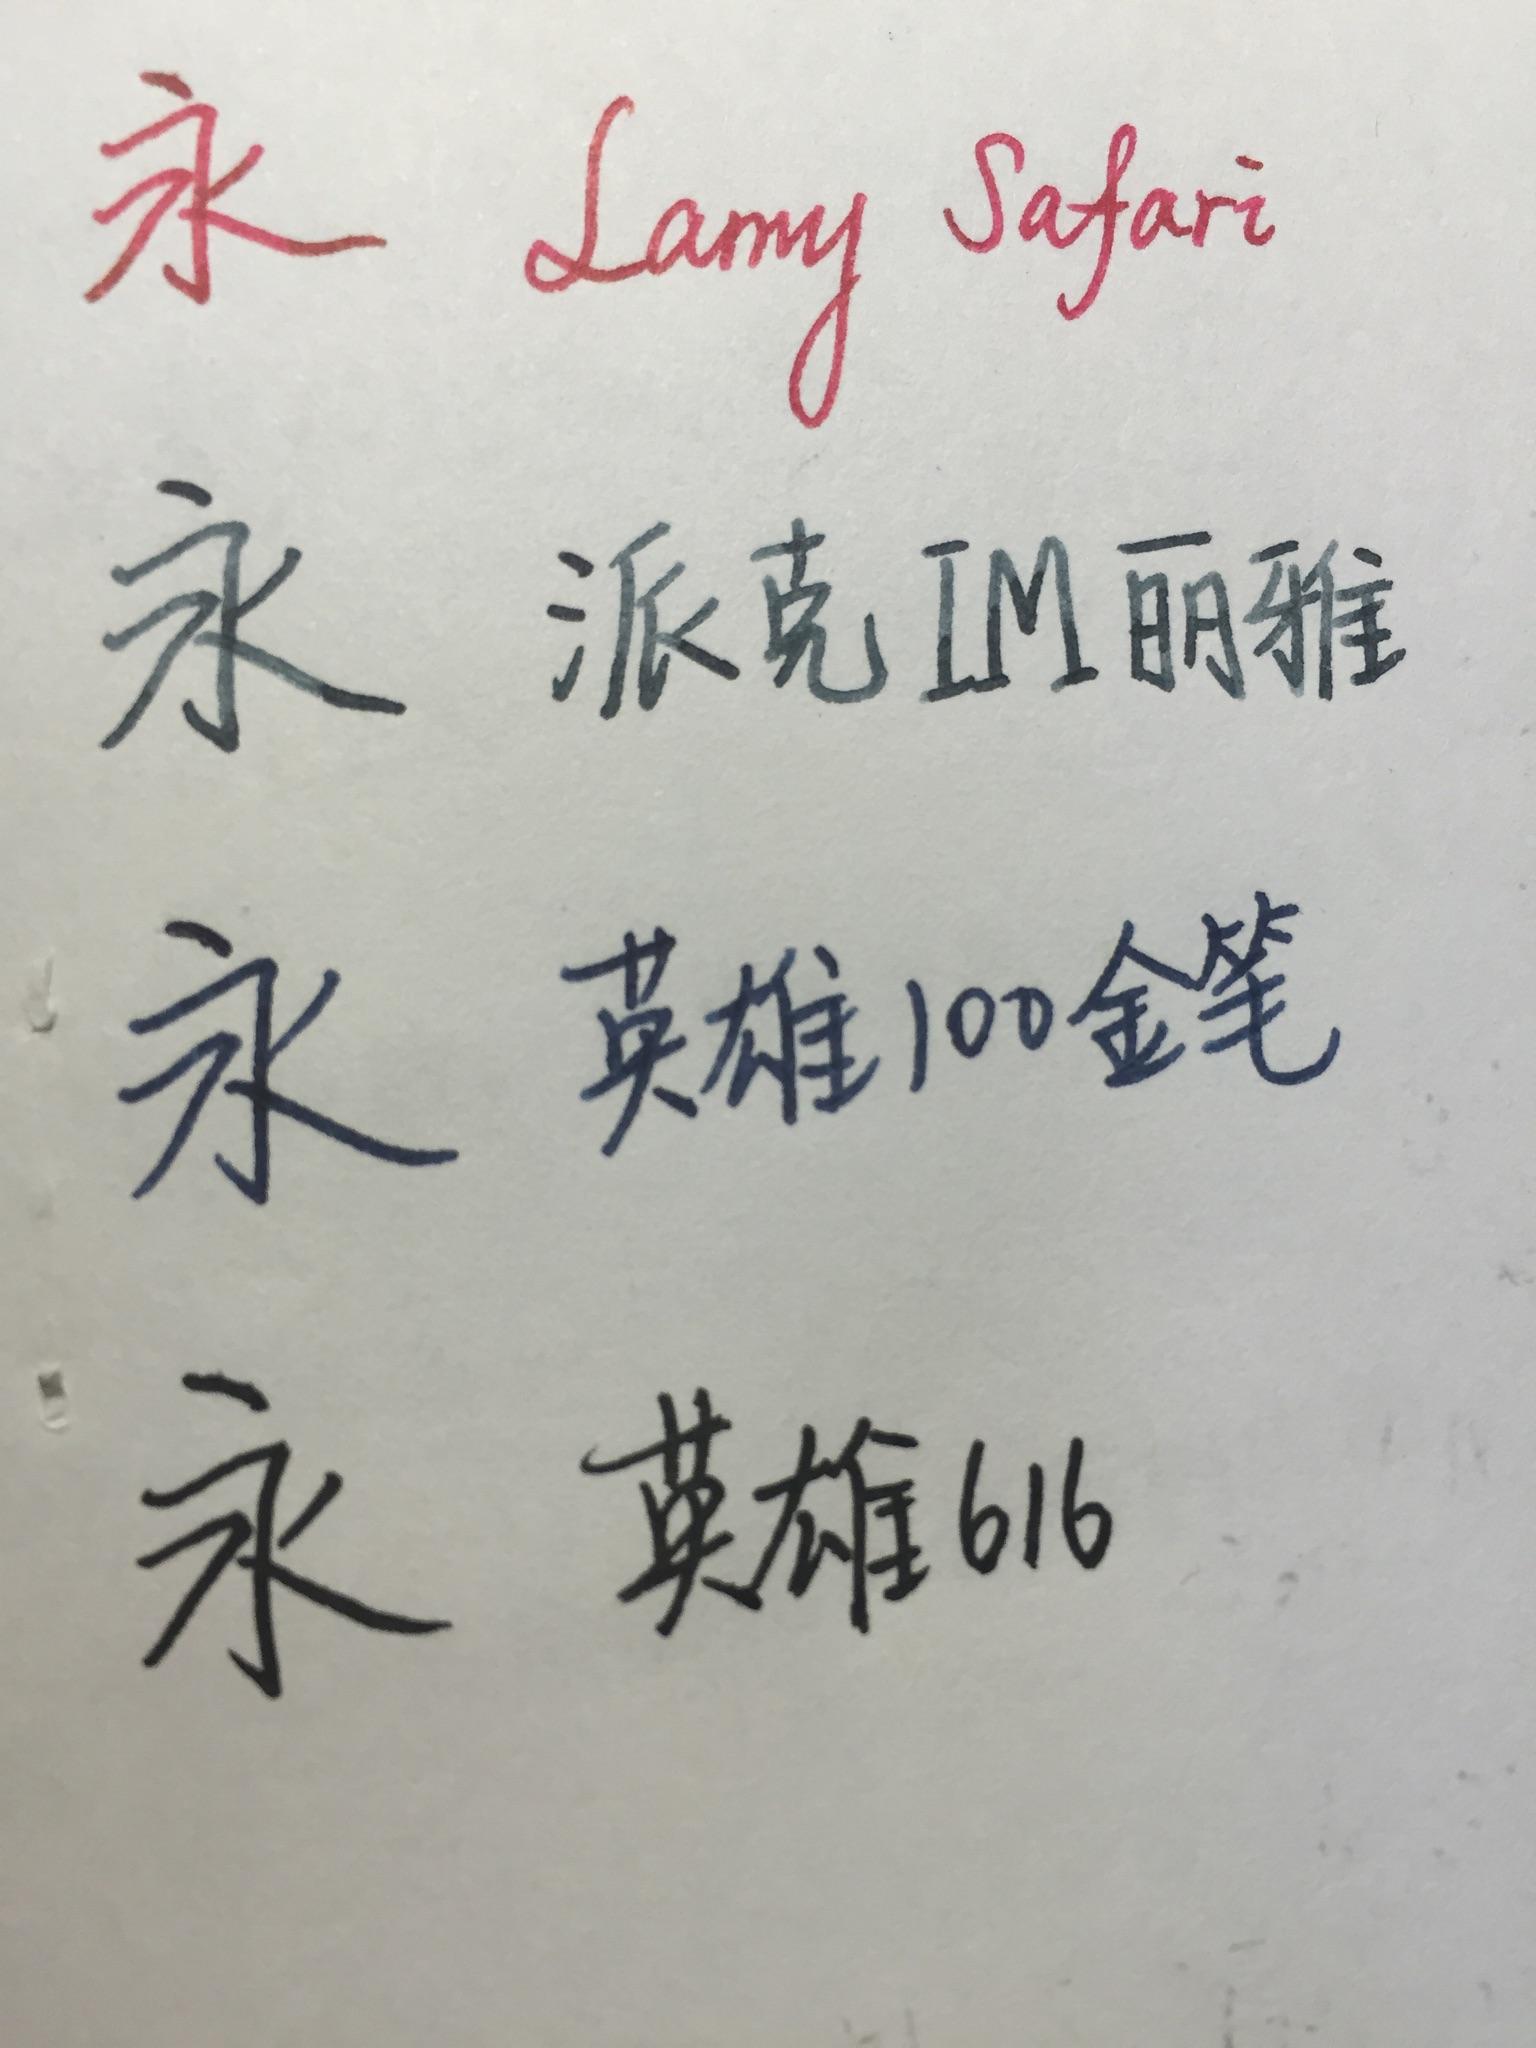 永 Lamy Safari
永 派克IM丽雅
永 英雄100金笔
永 英雄616